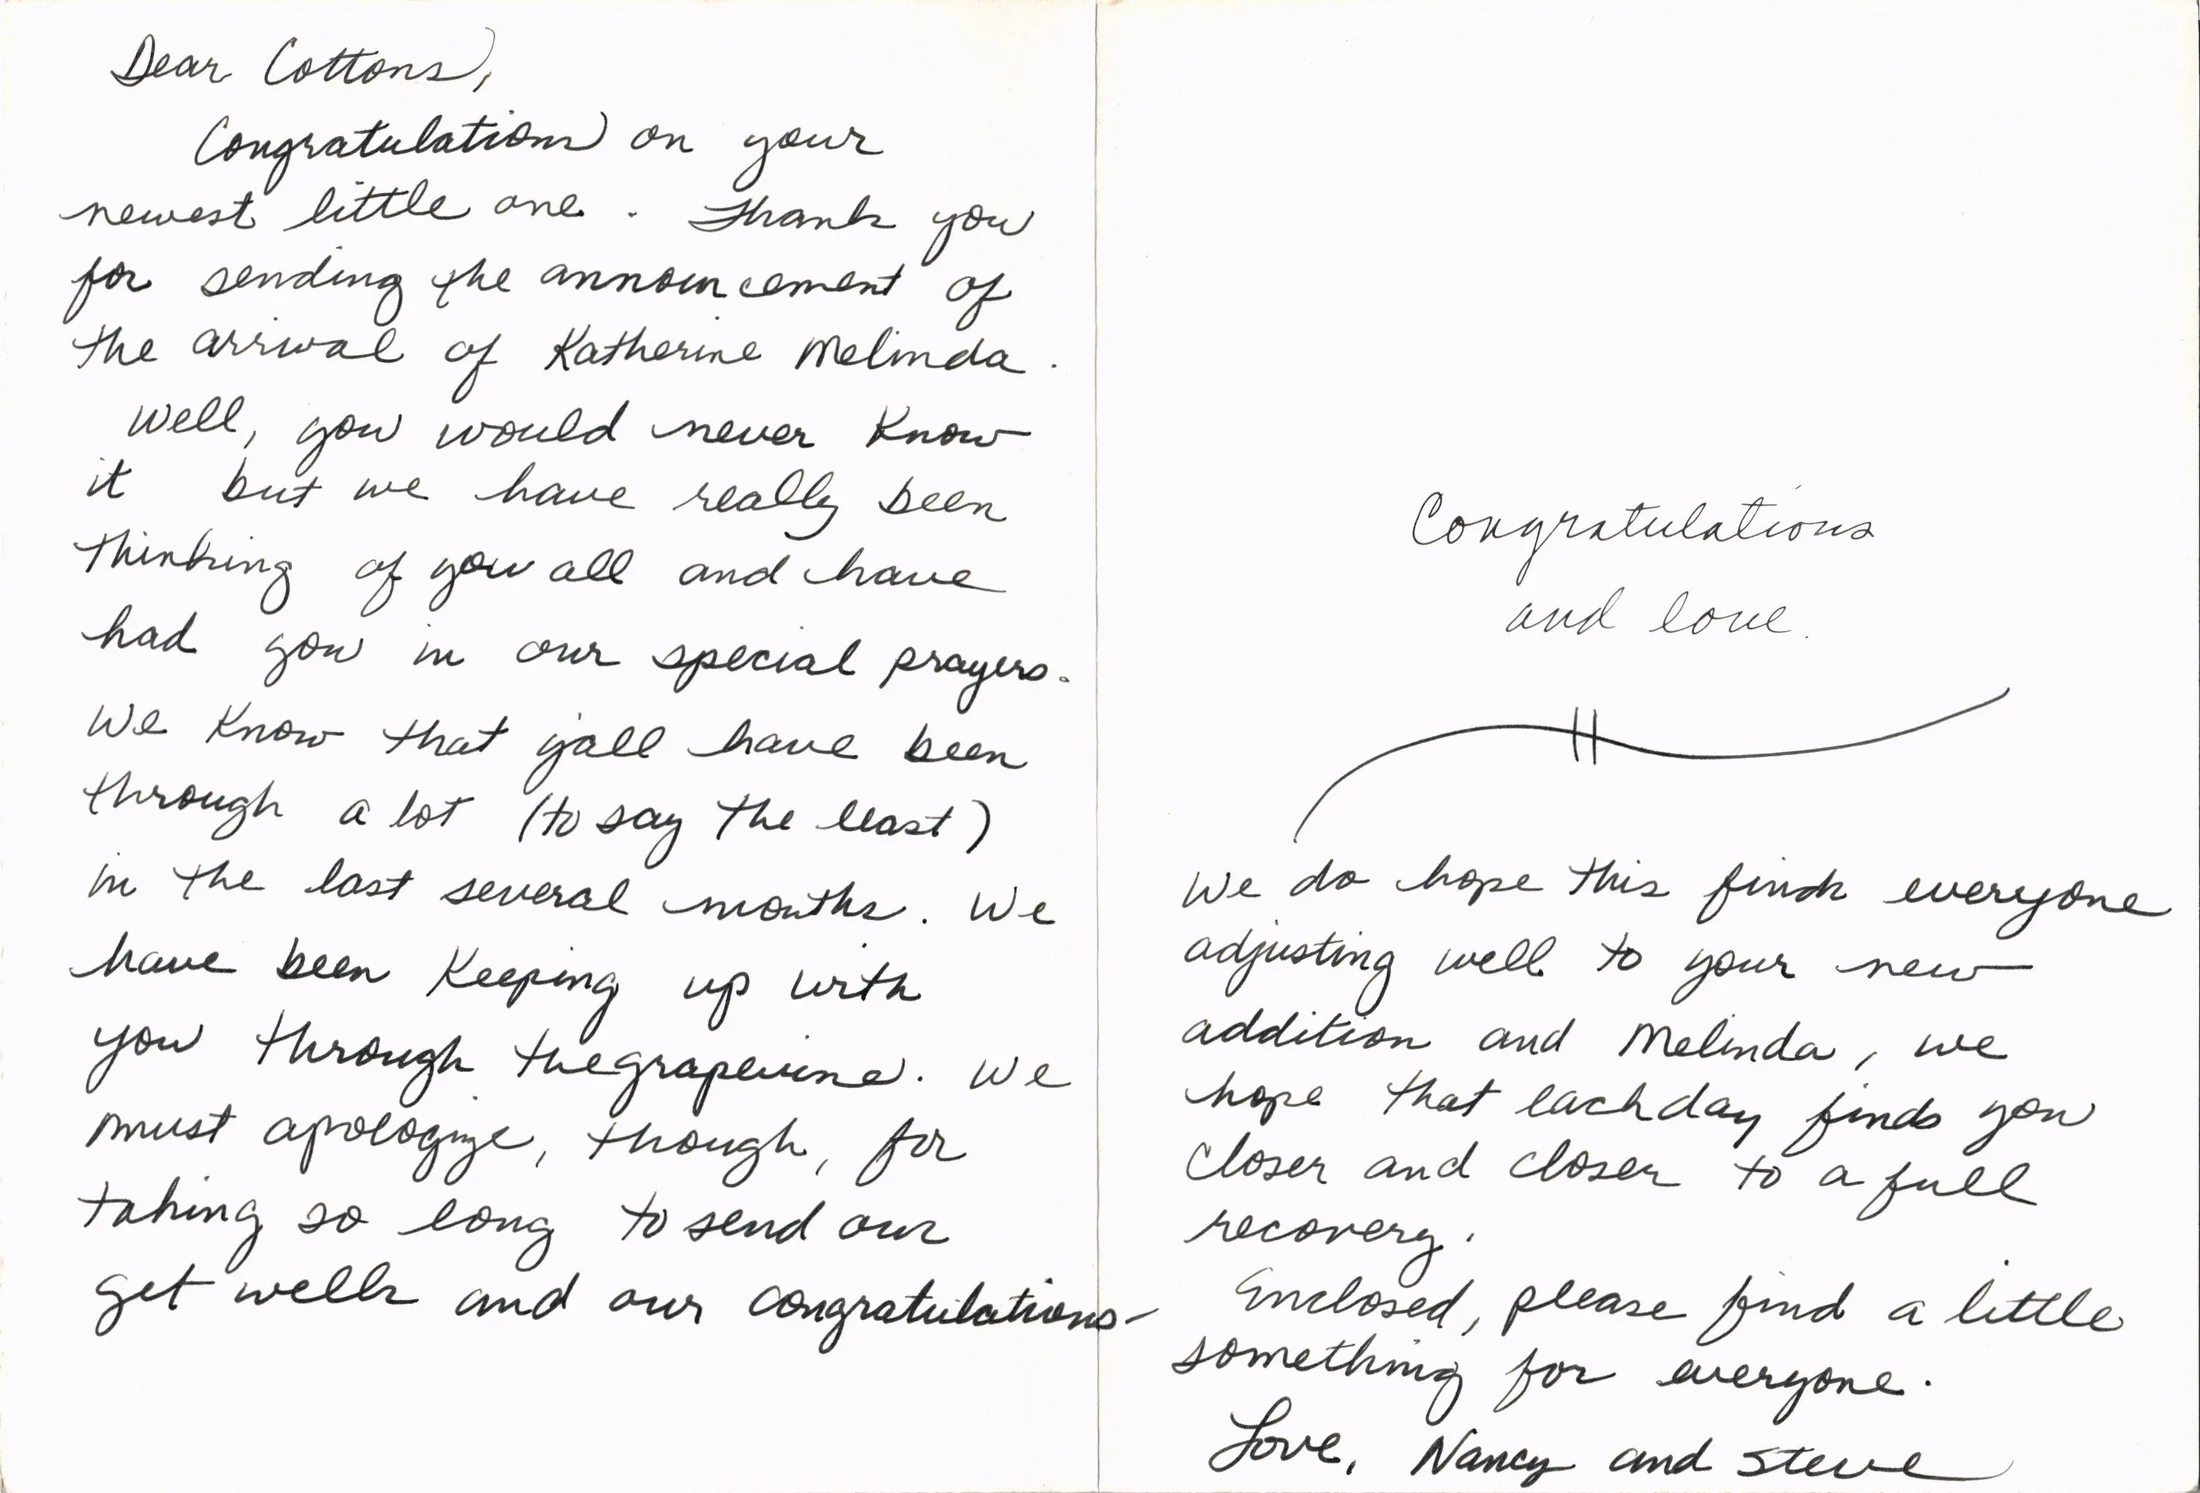 Dear Cottons,
Congratulations on your
newest little one. Thank you
for sending the announcement of
the arrival of Katherine Melinda.
Well, you would never know
it but we have really been
thinking of you all and have
had you in our special prayers.
We know that y'all have been
through a lot (to say the least)
in the last several months. We
have been keeping up with
you through the grapevine. We
must apologize, though, for
taking so long to send our
get wells and our congratulations-
Congratulations
and love.
We do hope this finds everyone
adjusting well to your new
addition and Melinda, we
hope that each day finds you
closer and closer to a full
recovery.
Enclosed, please find a little
something for everyone.
Love, Nancy and Steve